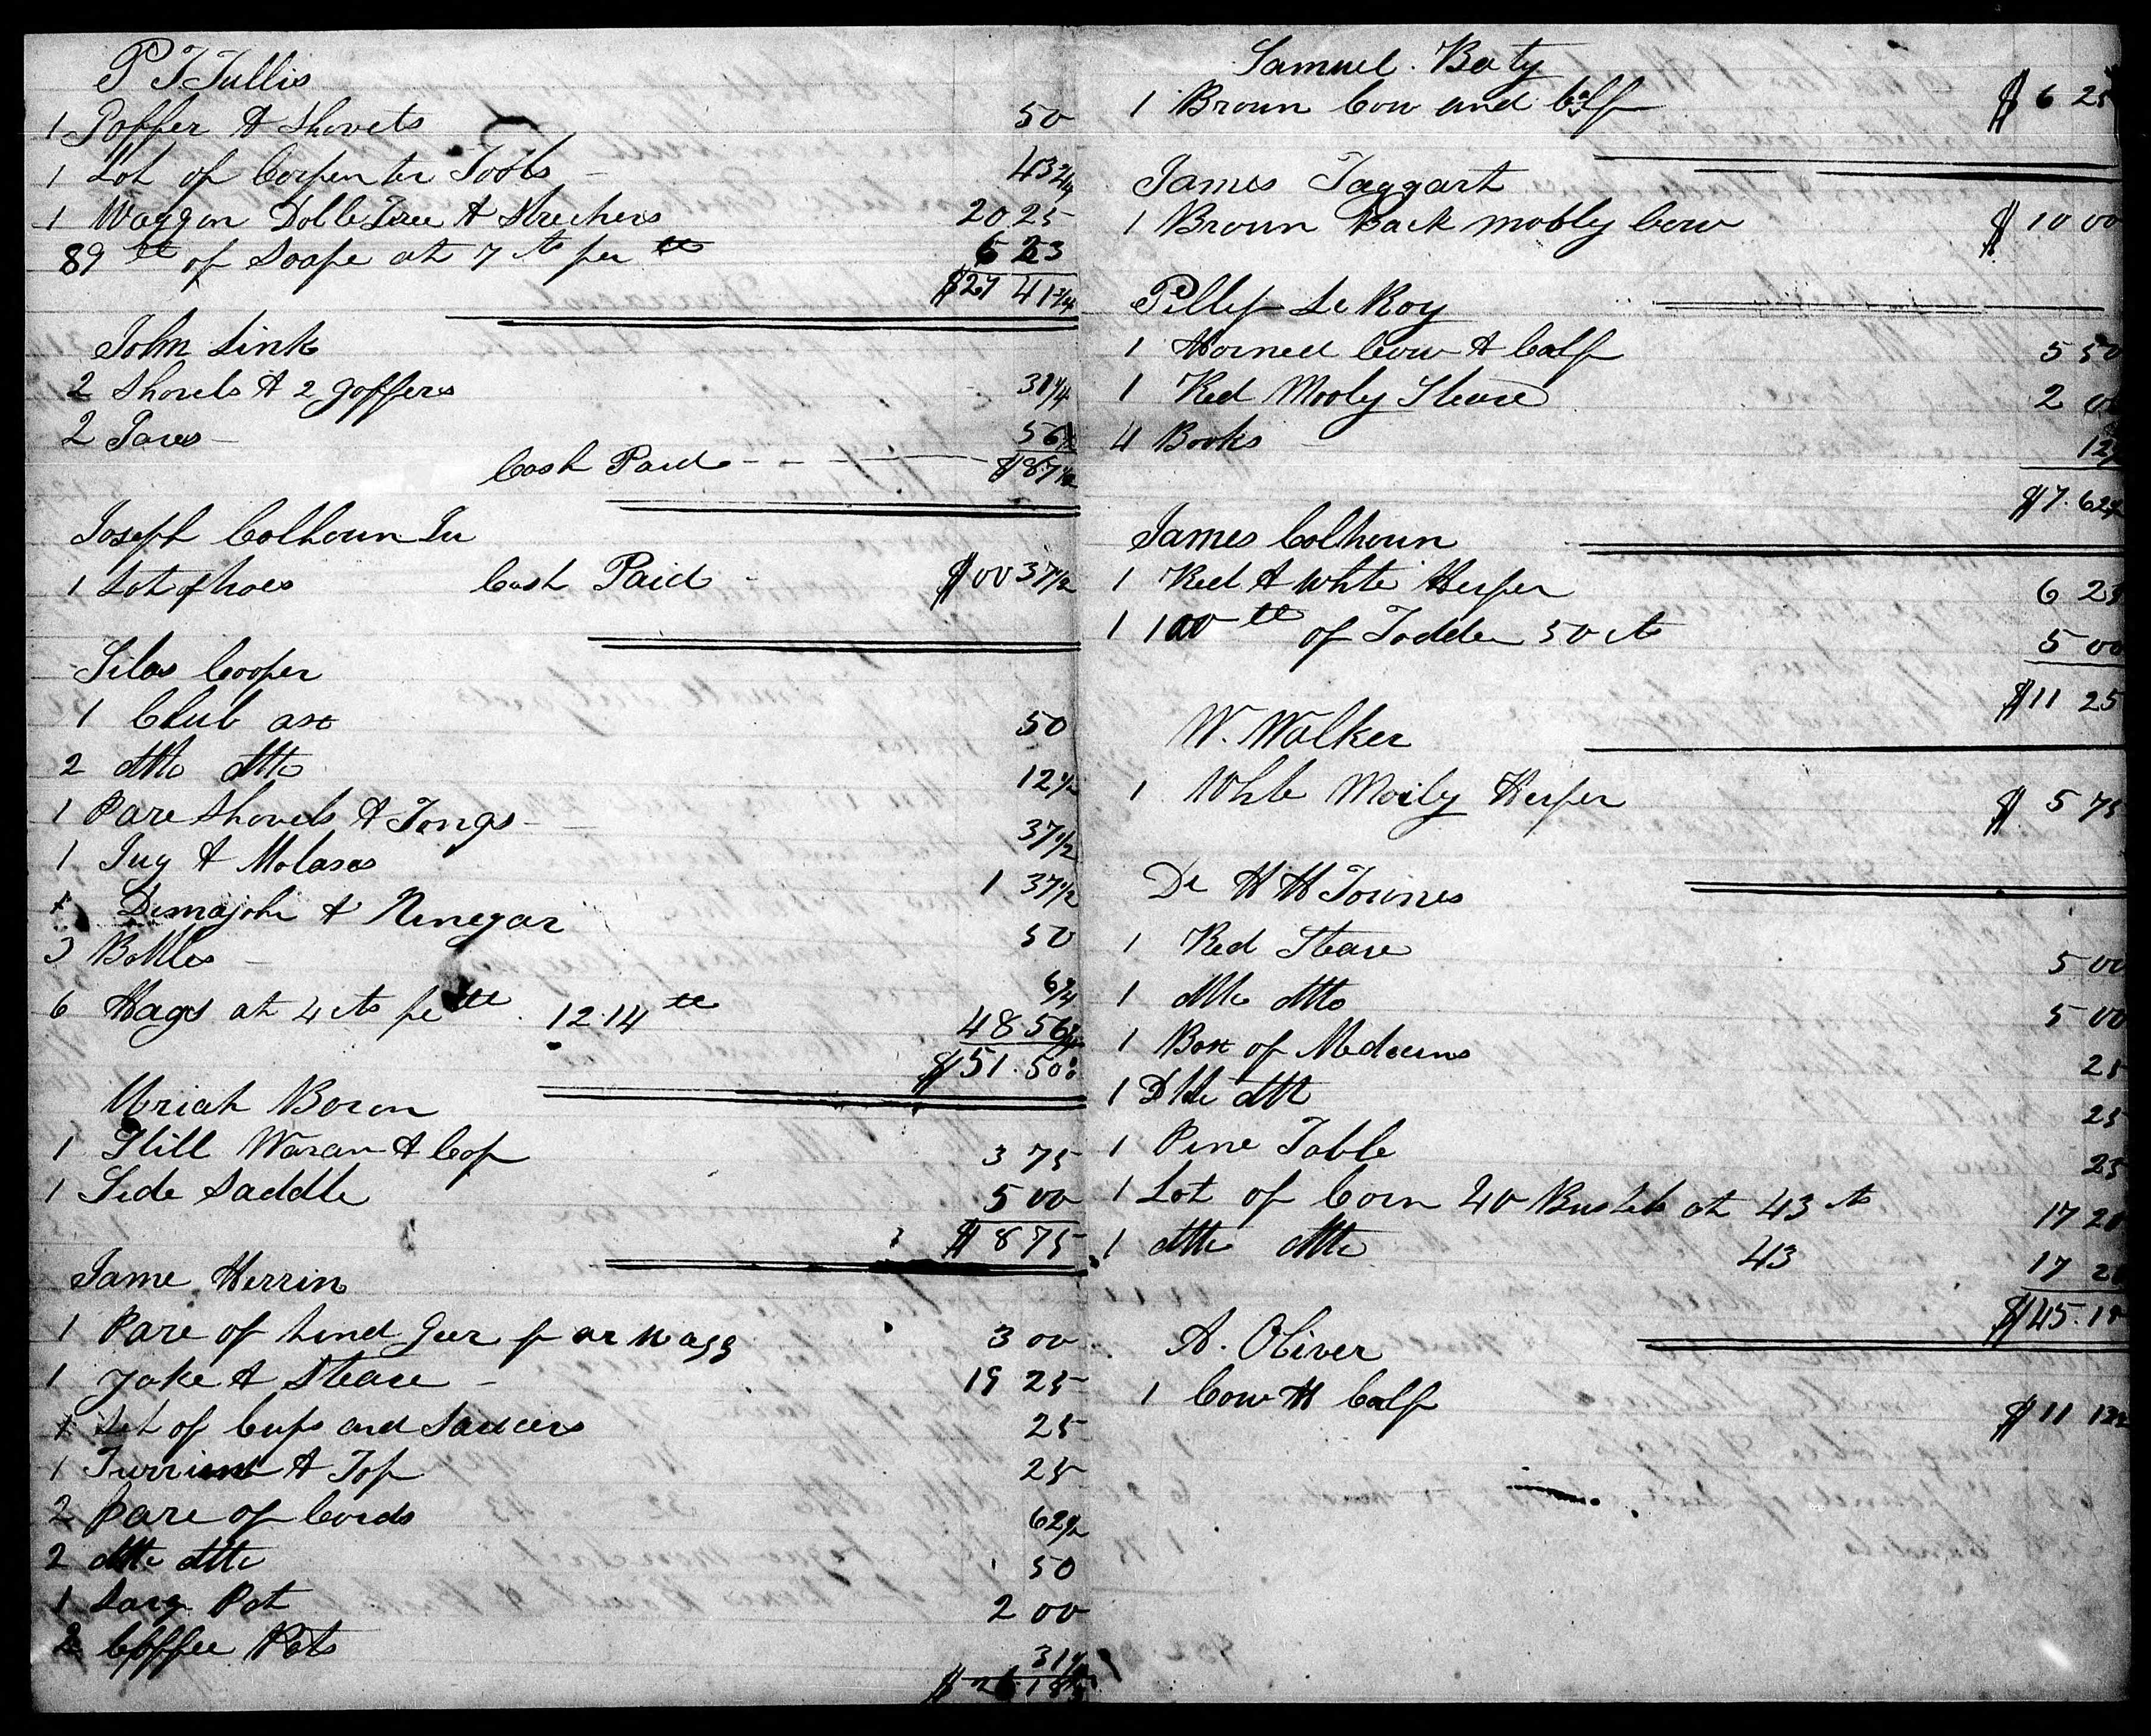 P T Tullis
1 Goffer & Shovels 50
1 Lot of Corpenter Tools - 43 3/4
1 Waggon Dolle Tree & Strechers 20 25
89 lb of Soape at 7 cts per lb 6 23
$27 41 3/4
John Link
2 Shovels & 2 goffers 31 1/4
2 Saws - 56 1/4
Cash Paid - - - $ 87 1/2
Joseph Colhoun Su
1 Lot of hoes Cash Paid - $ 00 37 1/2
Silas Cooper
1 Club ax 50
2 ditto ditto 12 1/2
1 Pare Shovels & Tongs - 37 1/2
1 Jug & Molases 1 37 1/2
1 Demajohn & Vinegar 50
3 Bottles - 6 1/4
6 Hags at 4 cts pe lb. 12.14 lb 48.56
$51.50
Uriah Boron
1 Still Waran & Cap 3 75
1 Side Saddle 5 00
$ 8 75
Jame Herrin
1 Pare of hind Geer for wagg 3 00
1 Yoke & Steare - 19 25
1 Set of Cups and Saucers 25
1 Turrine & Top 25
2 Pare of Cards 62 1/2
2 ditto ditto 50
1 Larg Pot 2 00
2 Coffee Pots 31 1/4
$ 26.18 3/4
Samuel. Baty
1 Broun Cow and Calf $ 6 25
James Taggart
1 Broun Back mobly Cow $ 10 00
Pillip LeRoy
1 Horned Cow & Calf 5 50
1 Red Mooly Steare 2 00
4 Books 12 1/2
$7.62 1/2
James Colhoun
1 Red & White Heifer 6 25
1 100 lb of Fodder 50 cts 5 00
$11 25
W. Walker
1 White Moily Heifer $ 5 75
Dr H H Tounes
1 Red Steare 5 00
1 ditto ditto 5 00
1 Box of Medecins 25
1 Ditto ditto 25
1 Pine Table 25
1 Lot of Corn 40 Bushels at 43 cts 17 20
1 ditto ditto 43 17 20
$45.15
A. Oliver
1 Cow & Calf $ 11 12 1/2